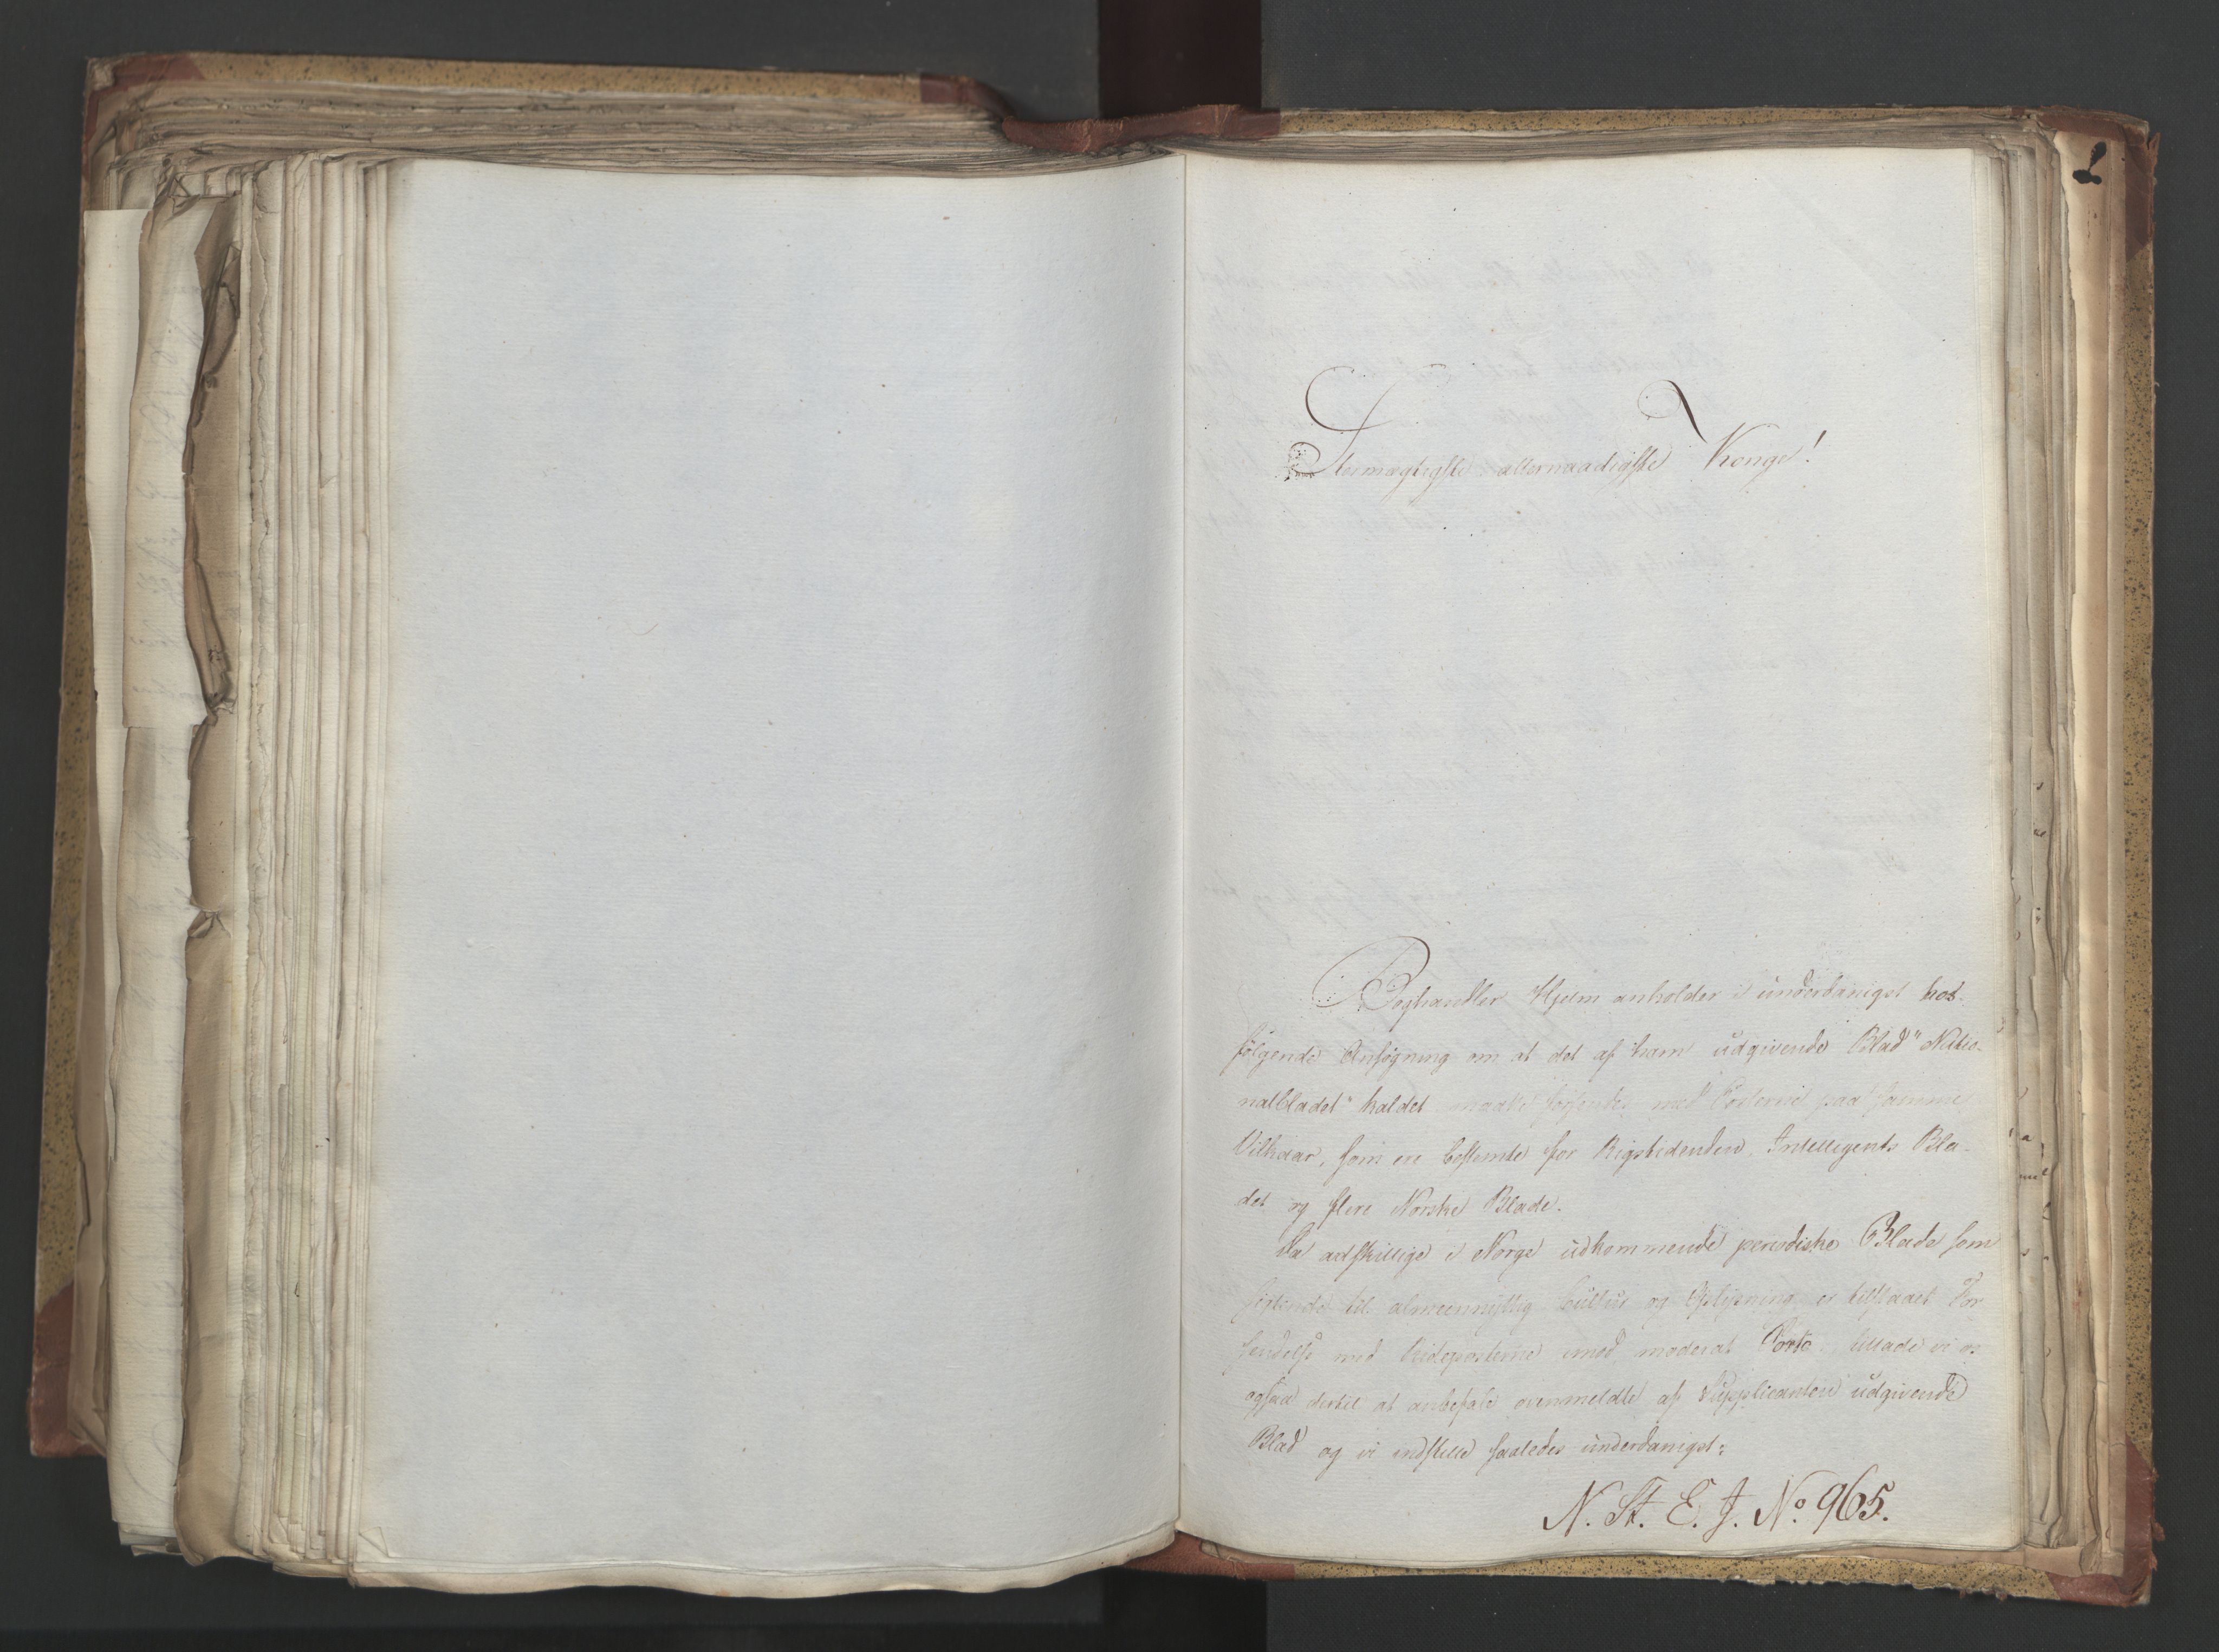 Stormægtigste allernaadigste Konge!
Boghandler Hjelm anholder i underdanigst hos-
følgende Ansøgning om at det af ham udgivende Blad "Natio-
nalbladet" kaldet maatte forsendes med Posterne paa samme
Vilkaar, som ere bestemte for Rigstidenden, Intelligents Bla-
det og flere Norske Blade.
Da adskillige i Norge udkommende periodiske Blade som
sigtende til almeennyttig Cultur og Oplysning er tilstaaet For
sendelse med Rideposterne imod moderat Porto, tillade vi os
ogsaa dertil at anbefale ovenmeldte af Supplicanten udgivende
Blad og vi indstille saaledes underdanigst:
N. St. E. J. No. 965.